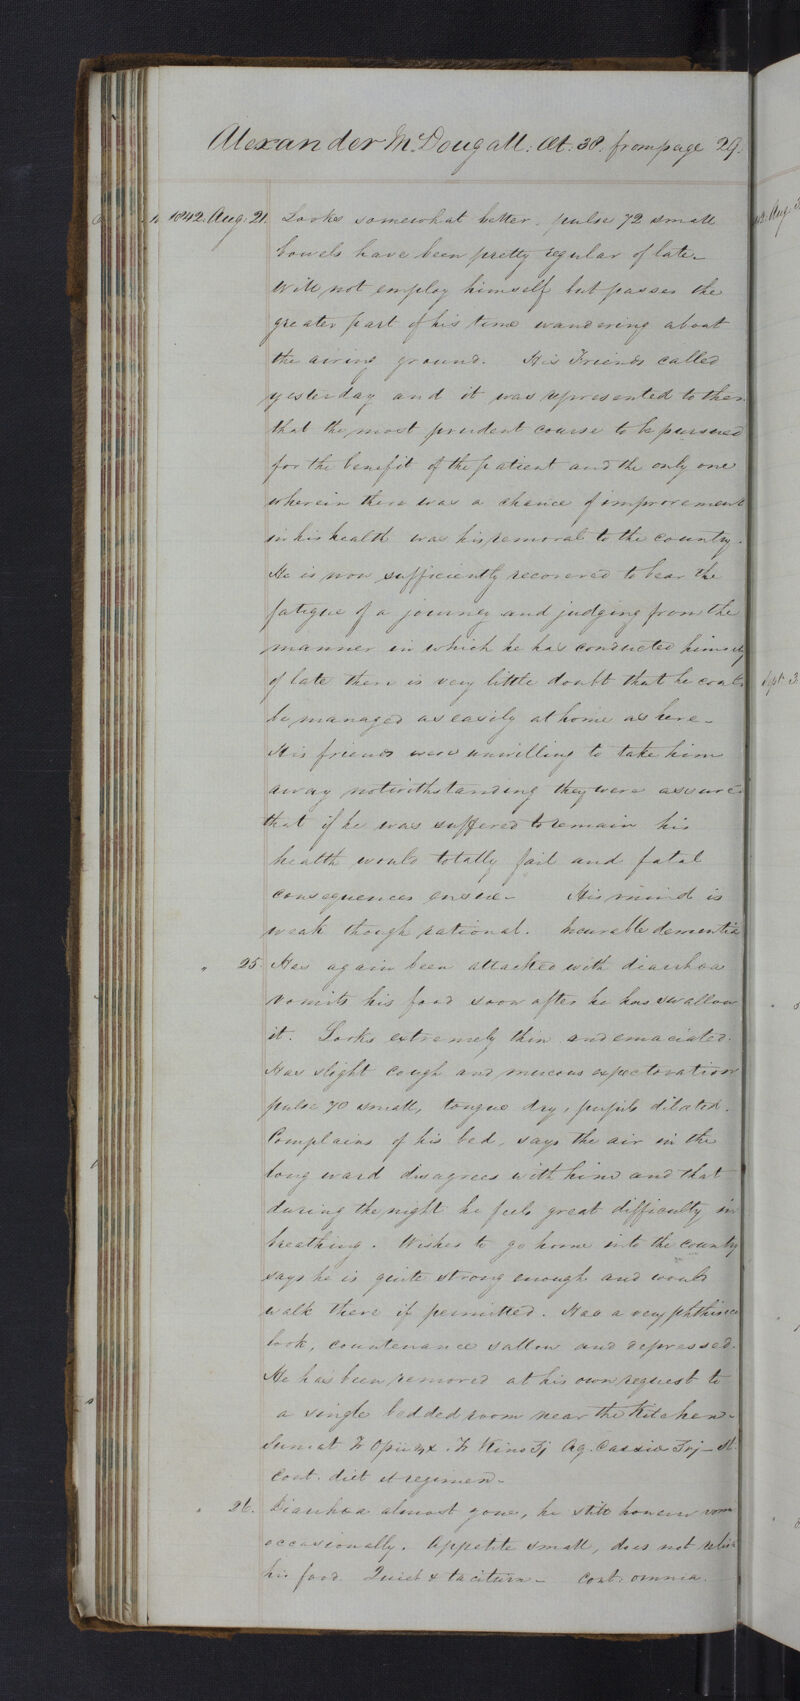 Alexander McDougall. Æt. 38. from page 29.
1842. Aug: 21. Looks somewhat better. pulse 72 small
bowels have been pretty regular of late –
Will not employ himself but passes the
greater part of his time wandering about
the airing ground. His Friends called
yesterday and it was represented to them
that the most prudent course to be pursued
for the benefit of the patient and the only one
wherein there was a chance of improvement
in his health was his removal to the country.
He is now sufficiently recovered to bear the
fatigue of a journey and judging from the
manner in which he has conducted himself
of late there is very little doubt that he could
be managed as easily at home as here –
His friends were unwilling to take him
away notwithstanding they were assured
that if he was suffered to remain his
health would totally fail and fatal
consequences ensue – His mind is
weak though rational. Incurable dementia
" 25. Has again been attacked with diarrhoea
vomits his food soon after he has swallow
it. Looks extremely thin and emaciated.
Has slight cough and mucous expectoration
pulse 70 small, tongue dry, pupils dilated.
Complains of his bed, says the air in the
long ward disagrees with him and that
during the night he feels great difficulty in
breathing. Wishes to go home into the country
says he is quite strong enough and would
walk there if permitted. Has a very phthisical
look, countenance sallow and depressed.
He has been removed at his own request to
a single bedded room near the Kitchen –
Sumat Tr Opii Tr Kino Aq. Cassiae
Cont. diet & regimen –
" 26. Diarrhoea almost gone, he still however vom
occasionally. Appetite small, does not relish
his food. Quiet & taciturn – Cont: omnia.
Aug. 3
Sept. 3